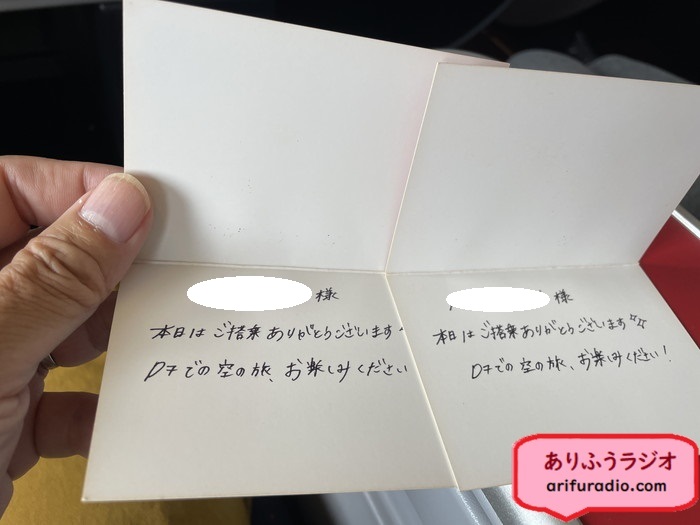 様
本日はご搭乗ありがとうございます
D7での空の旅、お楽しみください
様
本日はご搭乗ありがとうございます
D7での空の旅、お楽しみください!
ありふうラジオ
arifuradio.com